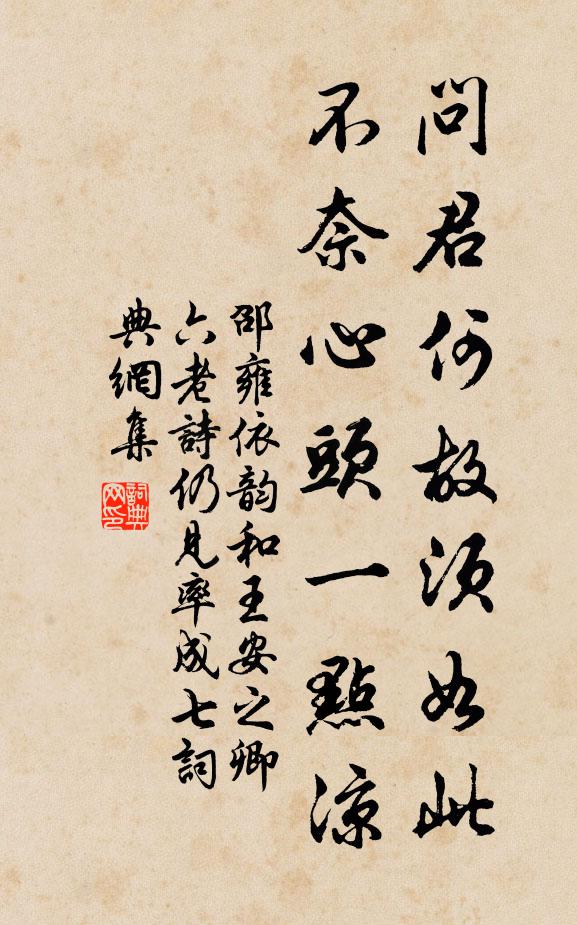 問君何故須如此
不奈心頭一點涼
邵雍依韵和王安之卿
六老詩仍見率成七詞
典網集
詞典
网印